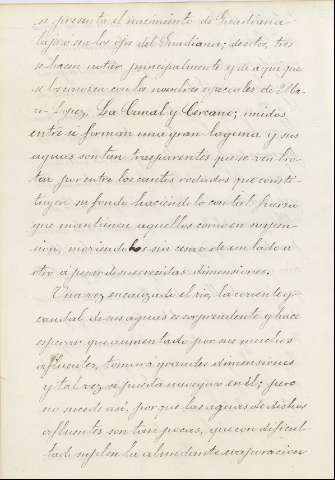 se presenta el nacimiento de Guadiana
bajo son los ojos del Guadiana; de estos, tres
se hacen notar principalmente y de aquí que
se los conozca con los nombres especiales de Ma-
ri-Lopez, La Canal y Cercano; unidos
entre si forman una gran laguna y sus
aguas son tan trasparentes que se ven bro-
tar por entre los cantos rodados que consti-
tuyen su fondo haciendolo con tal fuerza
que mantienen aquellos como en suspen-
sion, moviendolos sin cesar de un lado a
otro á pesar de sus crecidas dimensiones.
Una vez encauzado el rio, la corriente y
caudal de sus aguas es sorprendente y hace
esperar que aumentado por sus muchos
afluentes, tomará grandes dimensiones
y tal vez se pueda navegar en él; pero
no sucede asi, porque las aguas de dichos
afluentes son tan pocas, que con dificul-
tad suplen la abundante evaporacion